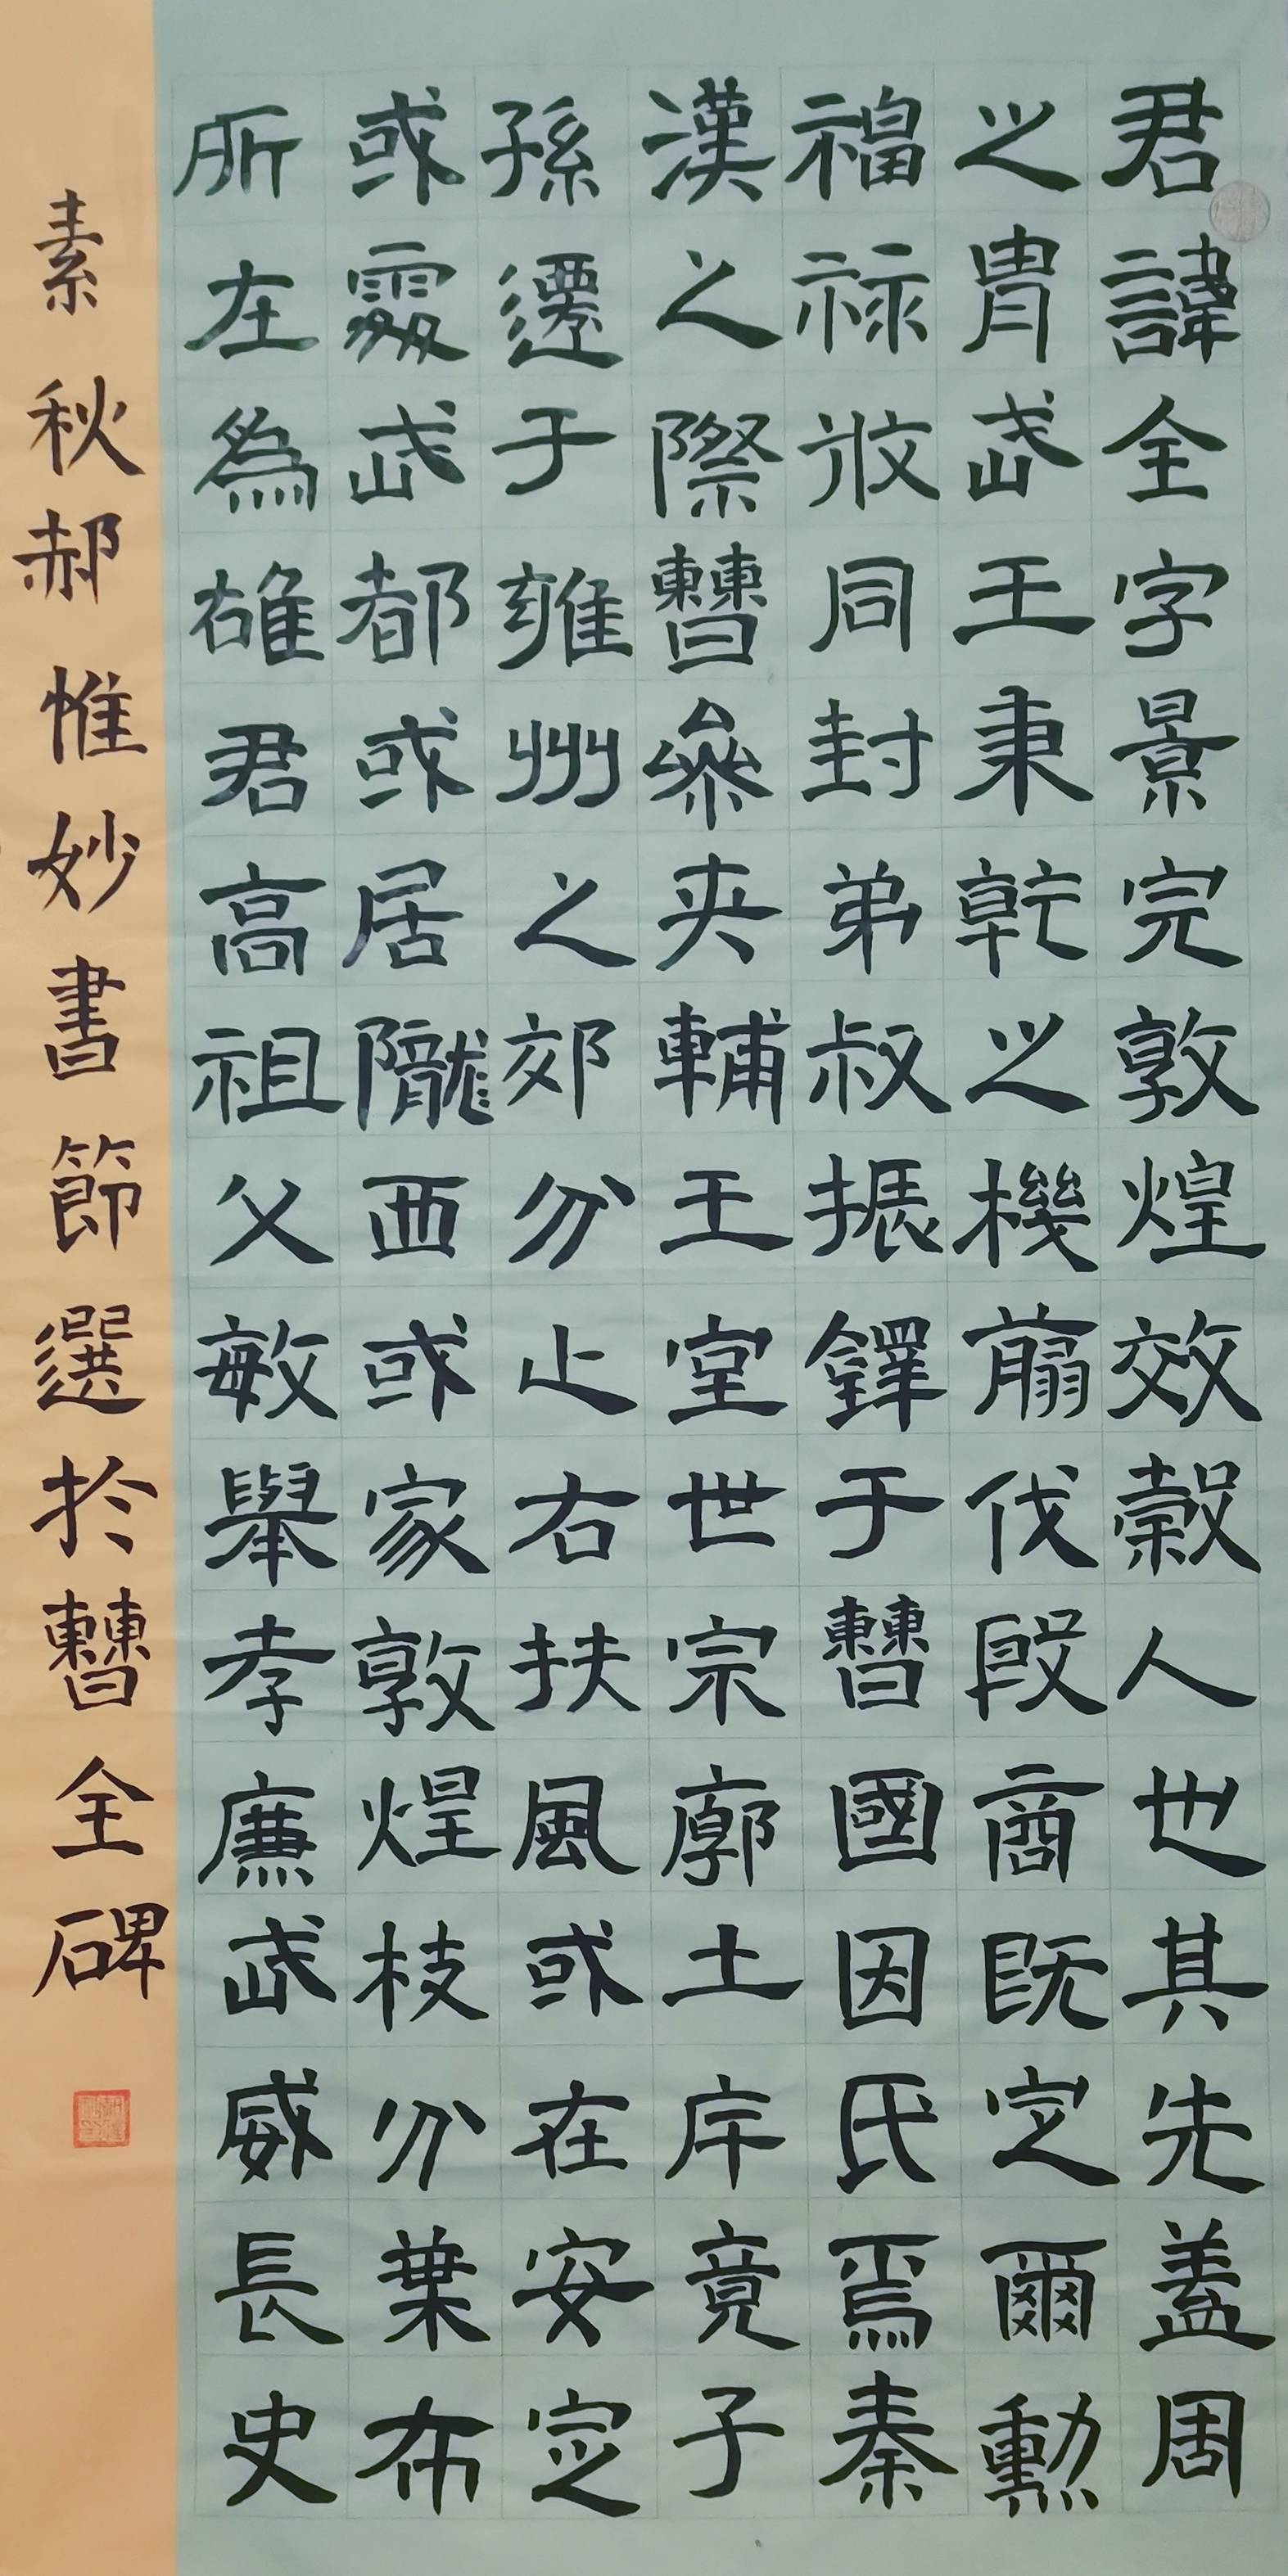 君諱全字景完敦煌效榖人也其先蓋周
之胄武王秉乾之機翦伐殷商既定爾勳
福祿攸同封弟叔振鐸于曹國因氏焉秦
漢之際曹參夾輔王室世宗廓土斥竟子
孫遷于雍州之郊分止右扶風或在安定
或處武都或居隴西或家敦煌枝分葉布
所在為雄君高祖父敏舉孝廉武威長史
素秋郝惟妙書節選於曹全碑